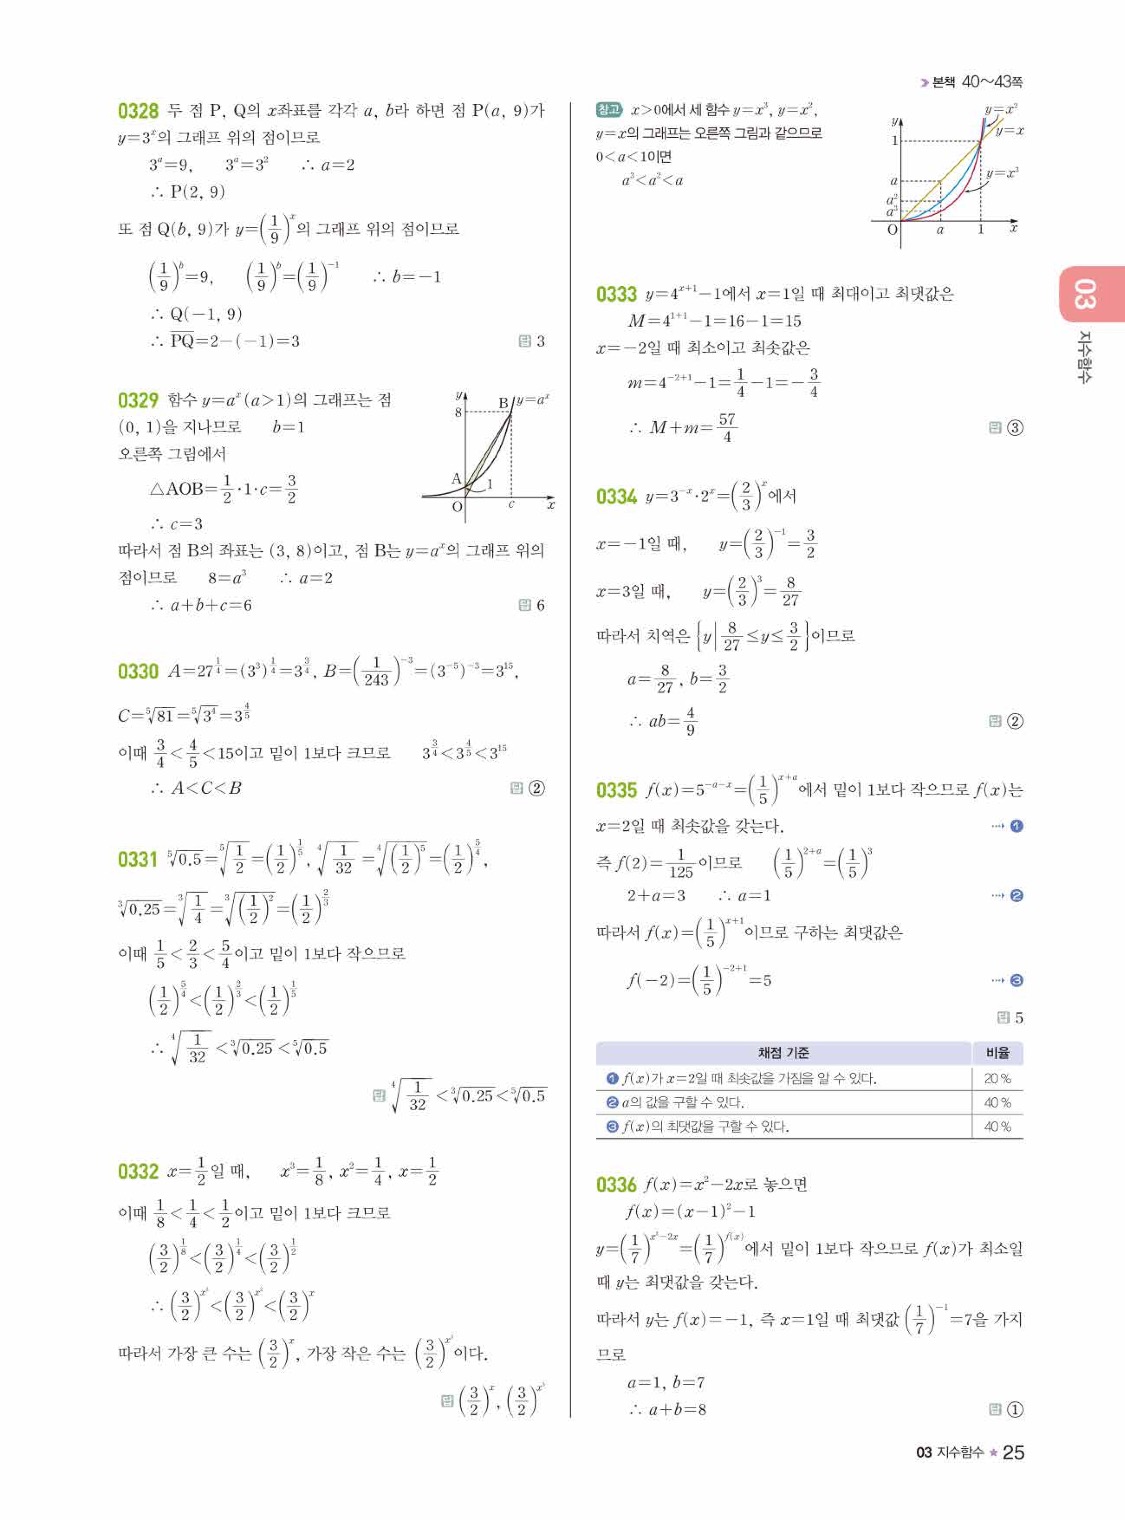 본책 40~43쪽
0328 두 점 P, Q의 x좌표를 각각 a, b라 하면 점 P(a, 9)가
y=3^x의 그래프 위의 점이므로
3^a=9, 3^a=3^2 ∴ a=2
∴ P(2, 9)
또 점 Q(b, 9)가 y=(1/9)^x의 그래프 위의 점이므로
(1/9)^b=9, (1/9)^b=(1/9)^-1 ∴ b=-1
∴ Q(-1, 9)
∴ PQ=2-(-1)=3 답 3
0329 함수 y=a^x(a>1)의 그래프는 점
(0, 1)을 지나므로 b=1
오른쪽 그림에서
△AOB=1/2·1·c=3/2
∴ c=3
y 8 B y=a^x A 1 O c x
따라서 점 B의 좌표는 (3, 8)이고, 점 B는 y=a^x의 그래프 위의
점이므로 8=a^3 ∴ a=2
∴ a+b+c=6 답 6
0330 A=27^(1/4)=(3^3)^(1/4)=3^(3/4), B=(1/243)^-3=(3^-5)^-3=3^15,
C=⁵√81=⁵√3^4=3^(4/5)
이때 3/4<4/5<15이고 밑이 1보다 크므로 3^(3/4)<3^(4/5)<3^15
∴ A<C<B 답 ②
0331 ⁵√0.5=⁵√(1/2)=(1/2)^(1/5), ⁴√(1/32)=⁴√((1/2)^5)=(1/2)^(5/4),
³√0.25=³√(1/4)=³√((1/2)^2)=(1/2)^(2/3)
이때 1/5<2/3<5/4이고 밑이 1보다 작으므로
(1/2)^(5/4)<(1/2)^(2/3)<(1/2)^(1/5)
∴ ⁴√(1/32)<³√0.25<⁵√0.5
답 ⁴√(1/32)<³√0.25<⁵√0.5
0332 x=1/2일 때, x^3=1/8, x^2=1/4, x=1/2
이때 1/8<1/4<1/2이고 밑이 1보다 크므로
(3/2)^(1/8)<(3/2)^(1/4)<(3/2)^(1/2)
∴ (3/2)^(x^3)<(3/2)^(x^2)<(3/2)^x
따라서 가장 큰 수는 (3/2)^x, 가장 작은 수는 (3/2)^(x^3)이다.
답 (3/2)^x, (3/2)^(x^3)
참고 x>0에서 세 함수 y=x^3, y=x^2,
y=x의 그래프는 오른쪽 그림과 같으므로
0<a<1이면
a^3<a^2<a
y y=x^2 y=x 1 y=x^3 a a^2 a^3 O a 1 x
0333 y=4^(x+1)-1에서 x=1일 때 최대이고 최댓값은
M=4^(1+1)-1=16-1=15
x=-2일 때 최소이고 최솟값은
m=4^(-2+1)-1=1/4-1=-3/4
∴ M+m=57/4 답 ③
0334 y=3^-x·2^x=(2/3)^x에서
x=-1일 때, y=(2/3)^-1=3/2
x=3일 때, y=(2/3)^3=8/27
따라서 치역은 {y|8/27≤y≤3/2}이므로
a=8/27, b=3/2
∴ ab=4/9 답 ②
0335 f(x)=5^(-a-x)=(1/5)^(x+a)에서 밑이 1보다 작으므로 f(x)는
x=2일 때 최솟값을 갖는다. ···▸ ❶
즉 f(2)=1/125이므로 (1/5)^(2+a)=(1/5)^3
2+a=3 ∴ a=1 ···▸ ❷
따라서 f(x)=(1/5)^(x+1)이므로 구하는 최댓값은
f(-2)=(1/5)^(-2+1)=5 ···▸ ❸
답 5
채점 기준 비율
❶ f(x)가 x=2일 때 최솟값을 가짐을 알 수 있다. 20 %
❷ a의 값을 구할 수 있다. 40 %
❸ f(x)의 최댓값을 구할 수 있다. 40 %
0336 f(x)=x^2-2x로 놓으면
f(x)=(x-1)^2-1
y=(1/7)^(x^2-2x)=(1/7)^f(x)에서 밑이 1보다 작으므로 f(x)가 최소일
때 y는 최댓값을 갖는다.
따라서 y는 f(x)=-1, 즉 x=1일 때 최댓값 (1/7)^-1=7을 가지
므로
a=1, b=7
∴ a+b=8 답 ①
03 지수함수
03 지수함수 ★ 25